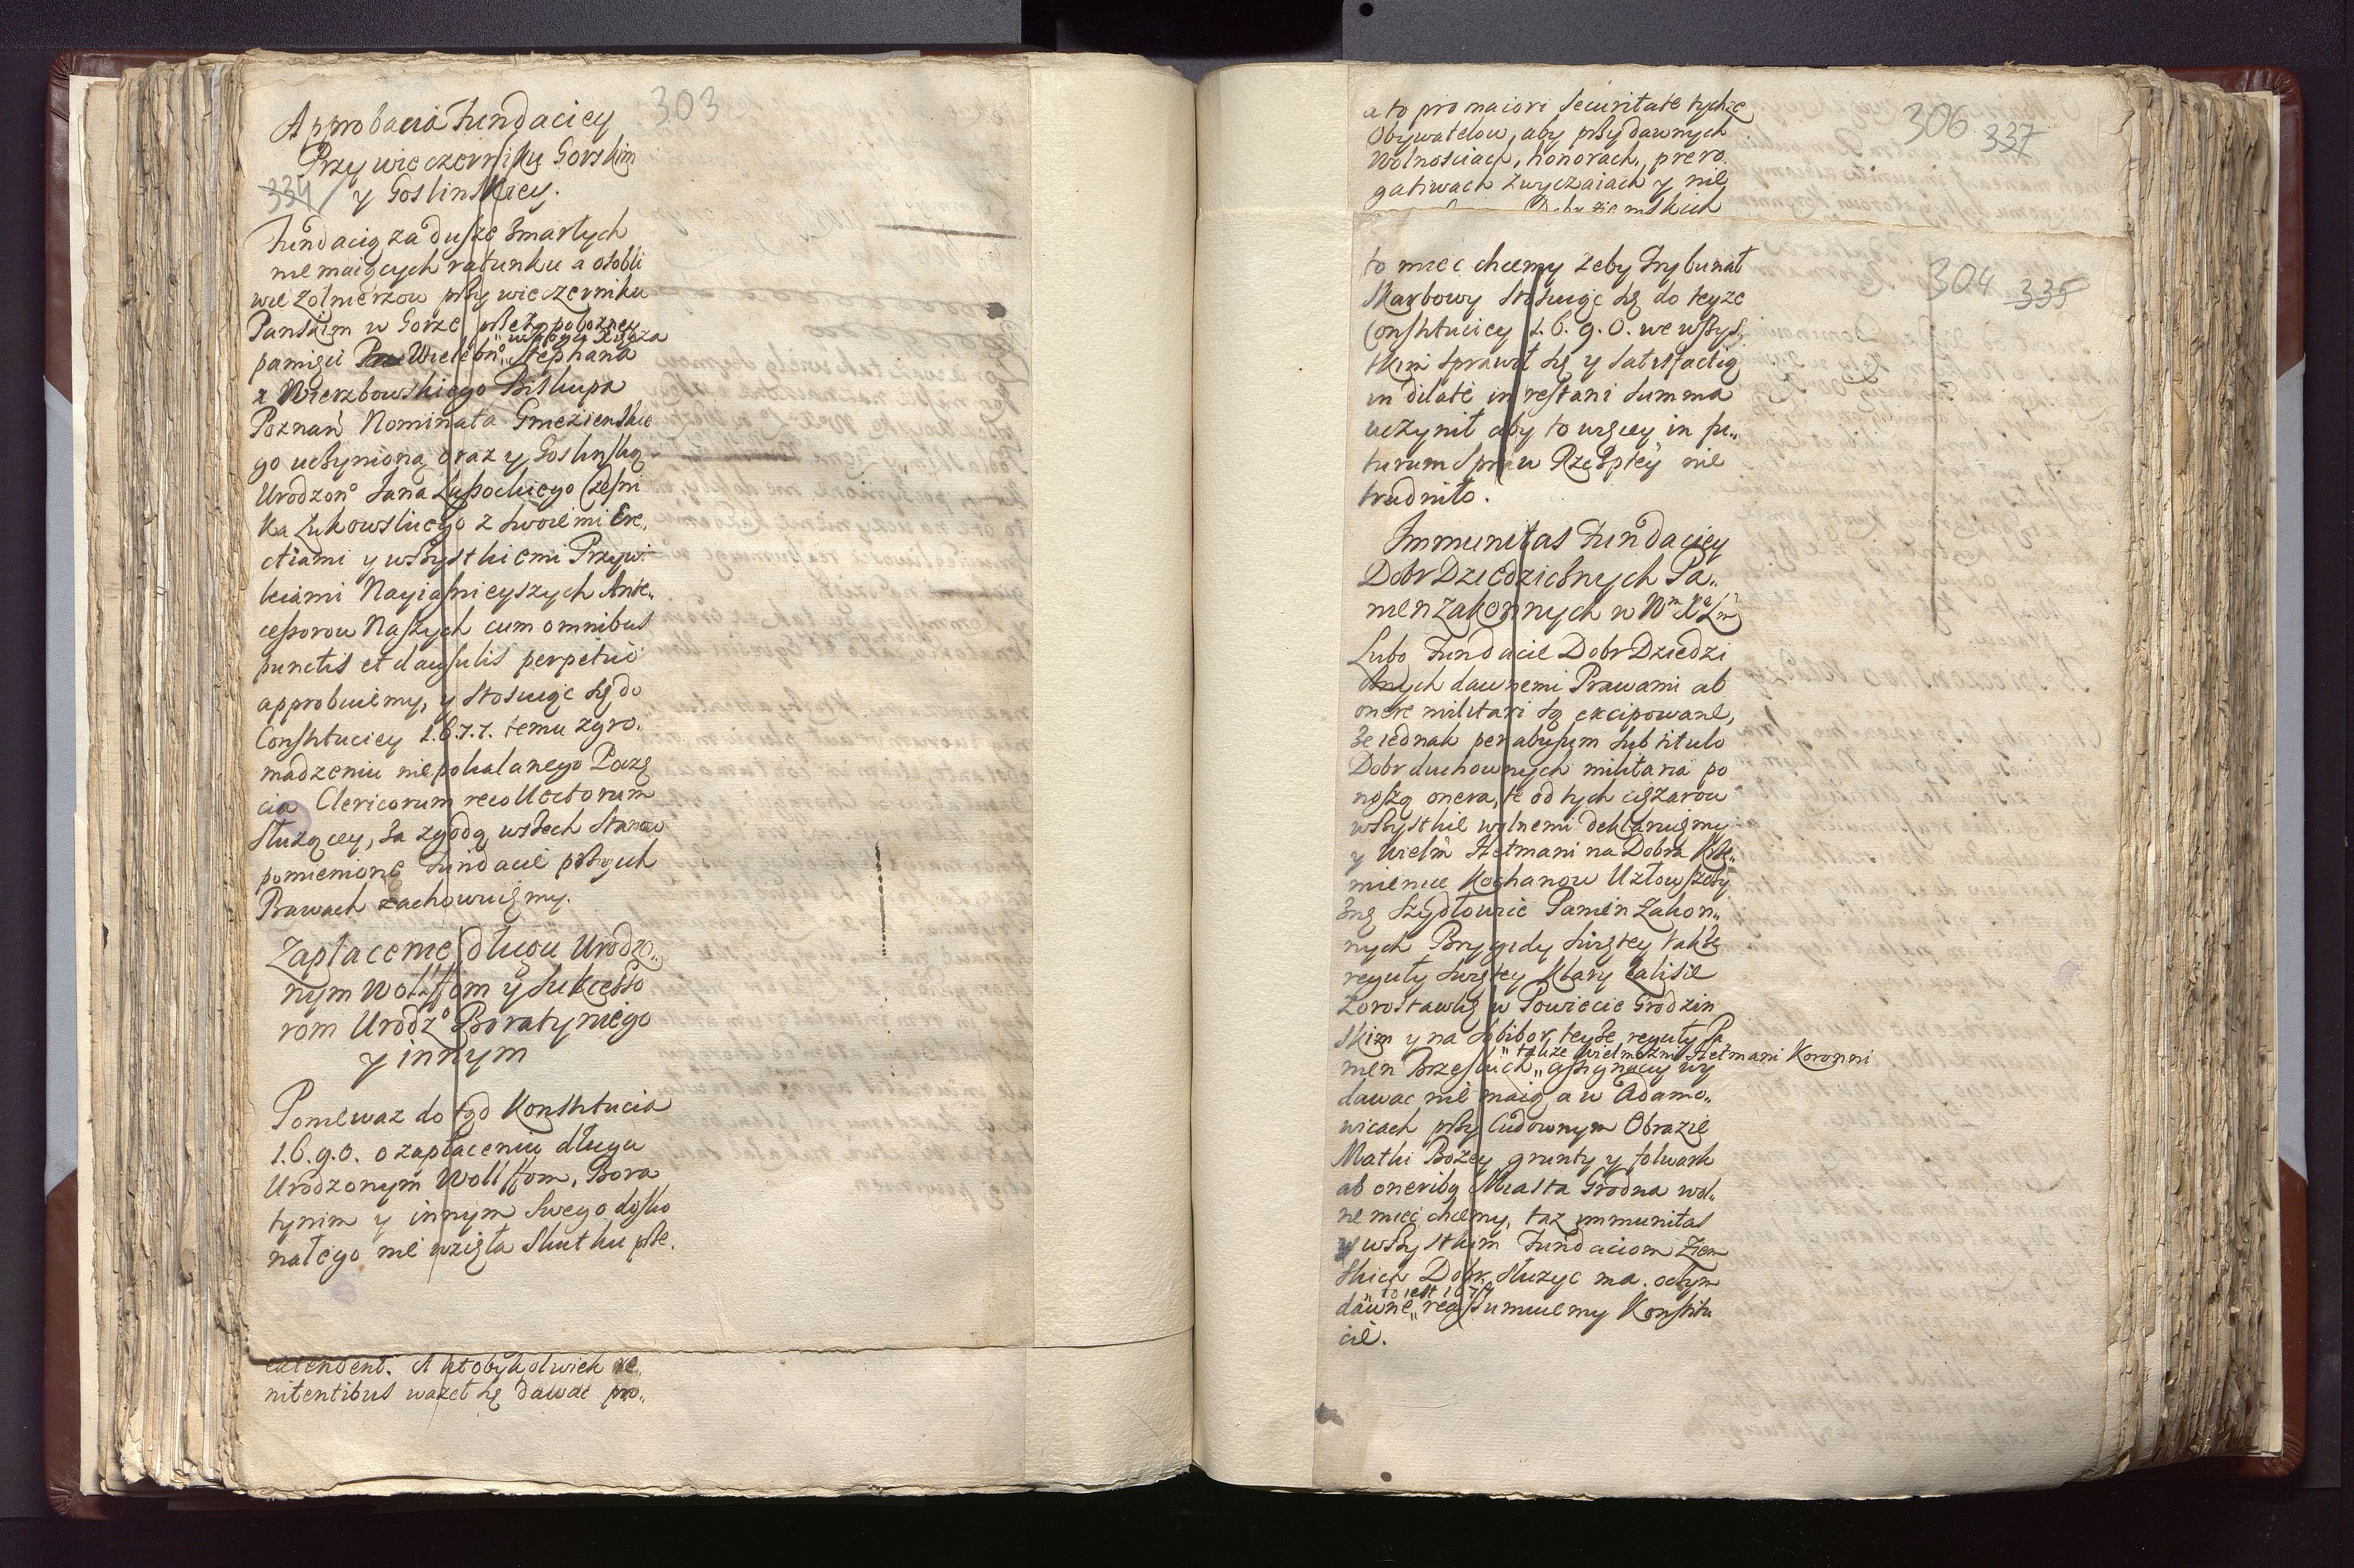 303
Approbacia Fundaciey
Przy wieczerniku Gorskim
334 y Goslinskiey.
Fundacią za dusze zmarłych
nie maiących ratunku a osobli
wie Zołnierzow przy wieczerniku
Panskim w Gorze przez pobożney
w Bogu Xiędza
pamięci Wielebn° Stephana
z Wierzbowskiego Biskupa
Poznan Nominata Gnieznienskie
go uczynioną oraz y Goslinską
Urodzon° Jana Lasockiego Czesni
ka Łukowskiego z swoiemi Ere„
ctiami y wszystkiemi Przywi
leiami Nayiasnieyszych Ante„
cessorow Naszych cum omnibus
punctis et clausulis perpetuo
approbuiemy, y stosuiąc się do
Constituciey 1.6.7.7. temu zgro„
madzeniu niepokalanego Poczę
cia Clericorum recollectorum
służącey, za zgodą wszech Stanow
pomienione Fundacie przy ich
Prawach zachowuięmy.
Zapłacenie długu Urodzo„
nym Wolffom y Sukcesso
rom Urodz° Boratyniego
y innym
Poniewaz do tąd Konstitucia
1.6.9.0. o zapłaceniu długu
Urodzonym Wollffom, Bora
tynim y innym swego dosko
nałego nie wzięła skutku prze.
extendent. A ktobykolwiek re„
nitentibus ważet się dawac pro„
a to pro maiori securitate tychze
Obywatelow, aby przy dawnych
Wolnosciach, honorach, prero
gatiwach zwyczaiach y nie
Dobr ziemskich
306 337
to miec chcemy żeby Trybunał
Skarbowy stosuiąc się do teyze
Constituciey 1.6.9.0. we wszys„
tkim sprawił się y satisfactią
in dilate in restanti summa
uczynił aby to więcey in fu„
turum spraw Rzepltey nie
trudniło.
304 335
Immunitas Fundaciey
Dobr Dziedzicznych Pa„
nien Zakonnych w Wm X Lm
Lubo Fundacie Dobr Dziedzi
cznych dawnemi Prawami ab
onere militari są excipowane,
że iednak per abusum sub titulo
Dobr duchownych militaria po
noszą onera, te od tych ciężarow
wszystkie wolnemi deklaruięmy
y Wielm Hetmani na Dobra Krze„
mienice Kochanow Uzłow
Szydłowie Panien Zakon„
nych Brygidy Swiętey także
reguły Swiętey Klary
w Powiecie Grodzin
skim y na Sobibor teyże reguły Pa
także Wielmozni Hetmani Koronni
nien Brzeskich„ assignacyi wy
dawac nie maią a w Adamo„
wicach przy Cudownym Obrazie
Matki Bozey grunty y folwark
ab oneribg Miasta Grodna wol„
ne miec chcemy, taz immunitas
y wszystkim Fundaciom Ziem
skich Dobr służyc ma. o czym
to iest 1674
dawne„ reassumuiemy Konstitu
cie.